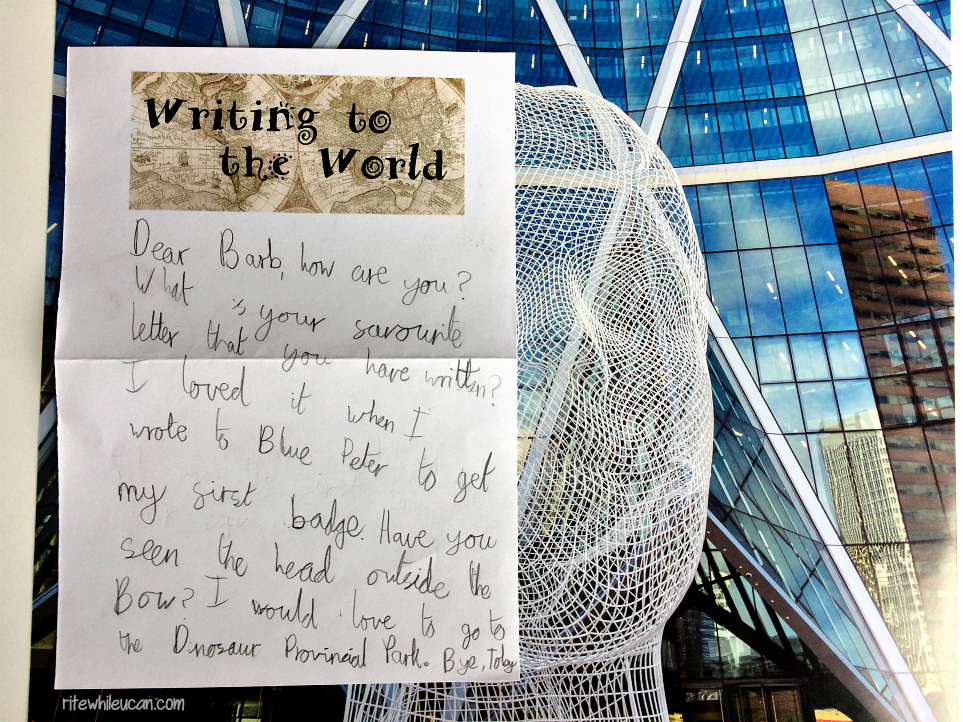 Writing to
the World
Dear Barb, how are you?
What is your favourite
letter that you have written?
I loved it when I
wrote to Blue Peter to get
my first badge. Have you
seen the head outside the
Bow? I would love to go to
the Dinosaur Provincial Park. Bye, Toby
ritewhileucan.com